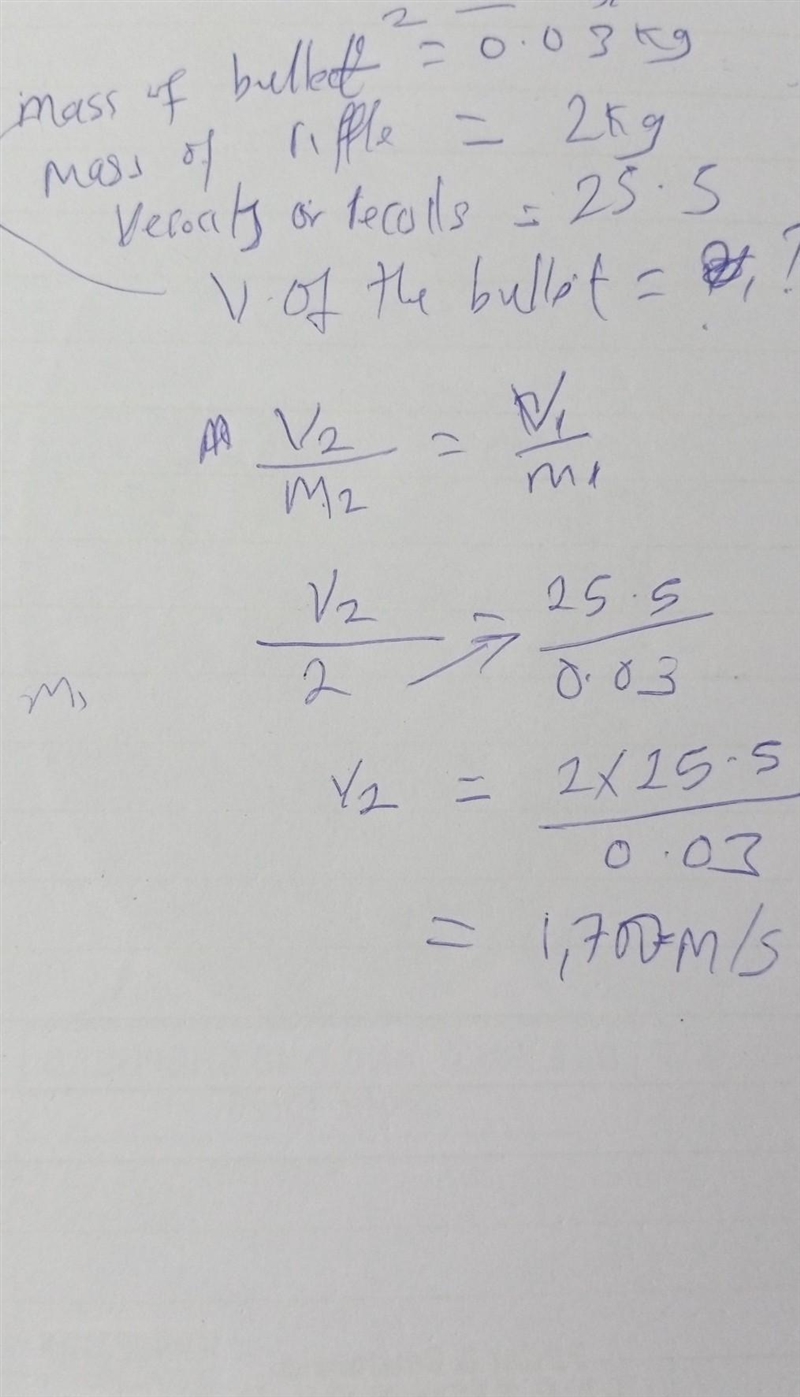 mass of bullet 2 = 0.03 kg
mass of riffle = 2kg
Velocity of recoils = 25.5
V. of the bullet = ?
V2/M2 = V1/m1
V2/2 = 25.5/0.03
m1
V2 = 2 x 25.5/0.03
= 1,700 m/s